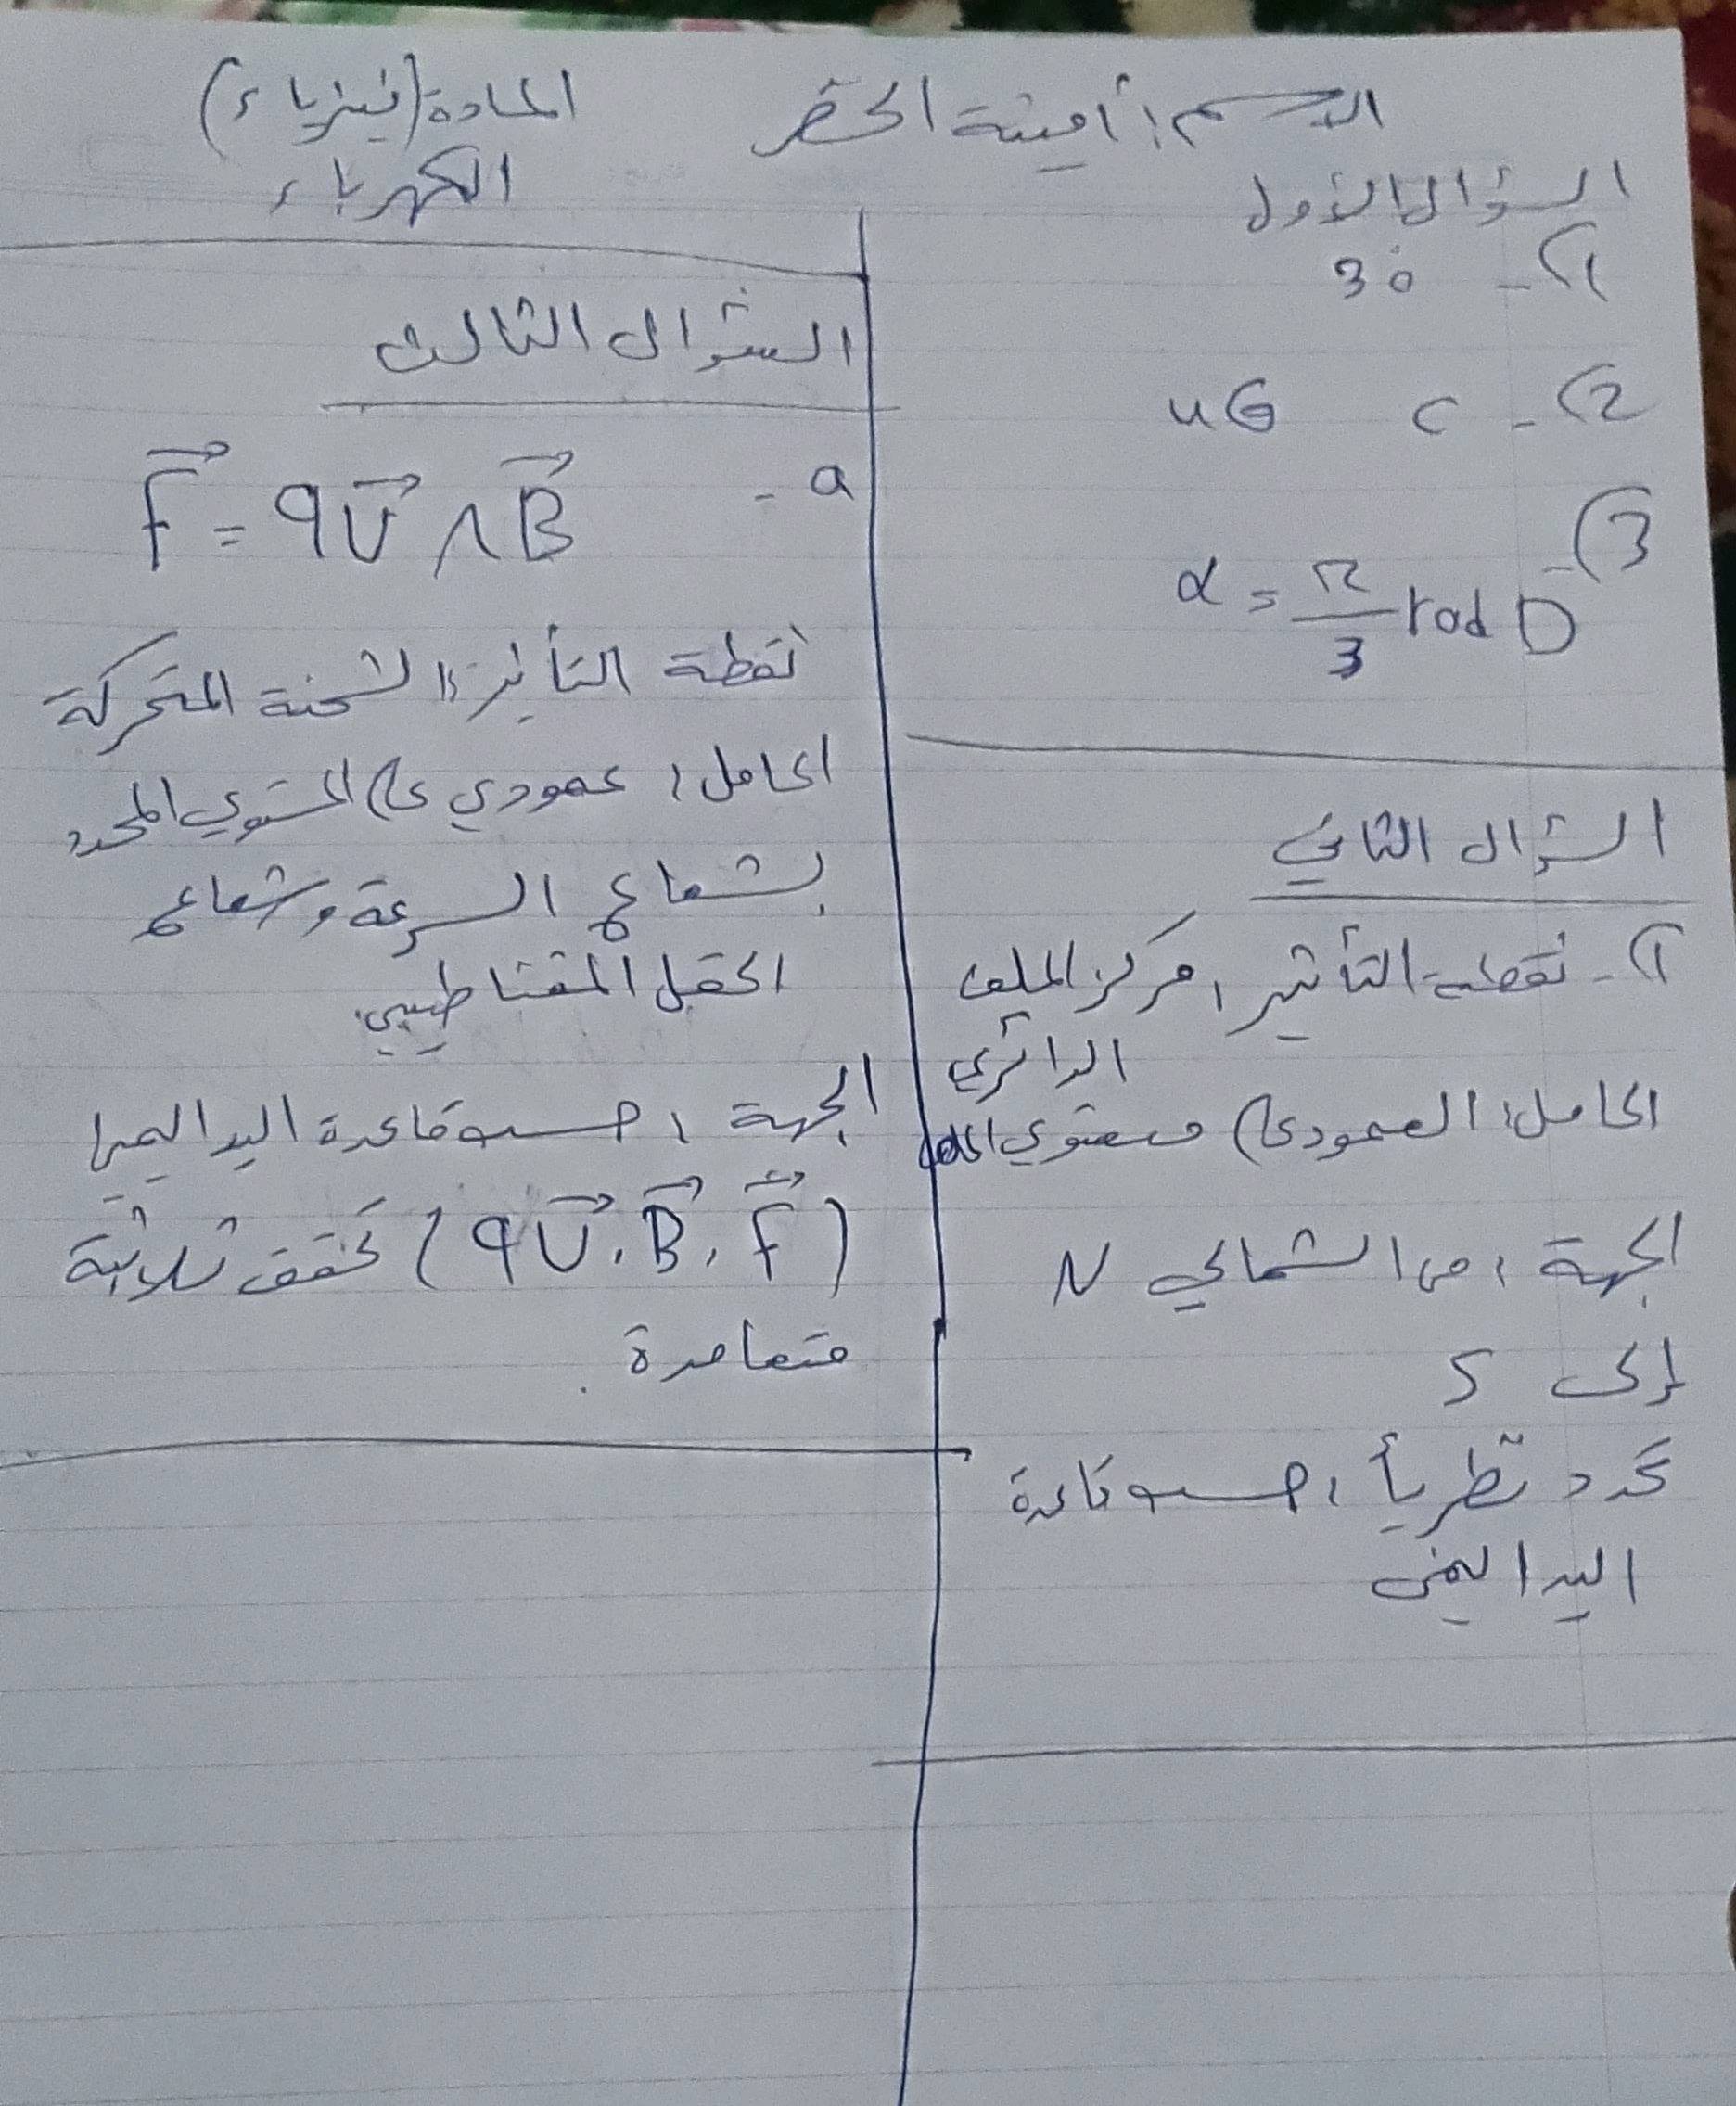 الاسم: أمينة الخضر
المادة (فيزياء)
الكهرباء
السؤال الأول
1) - 30
2) - c 4G
3) - D α = π/3 rad
السؤال الثاني
1) - نقطة التأثير: مركز الملف
الدائري
الحامل: العمود على مستوي الملف
الجهة: من الشمالي N
إلى S
تحدد نظرياً: حسب قاعدة
اليد اليمنى
السؤال الثالث
a - F⃗ = qv⃗ ∧ B⃗
نقطة التأثير: الشحنة المتحركة
الحامل: عمودي على المستوي المحدد
بشعاع السرعة وشعاع
الحقل المغناطيسي.
الجهة: حسب قاعدة اليد اليمنى
(qv⃗, B⃗, F⃗) تحقق ثلاثية
متعامدة.